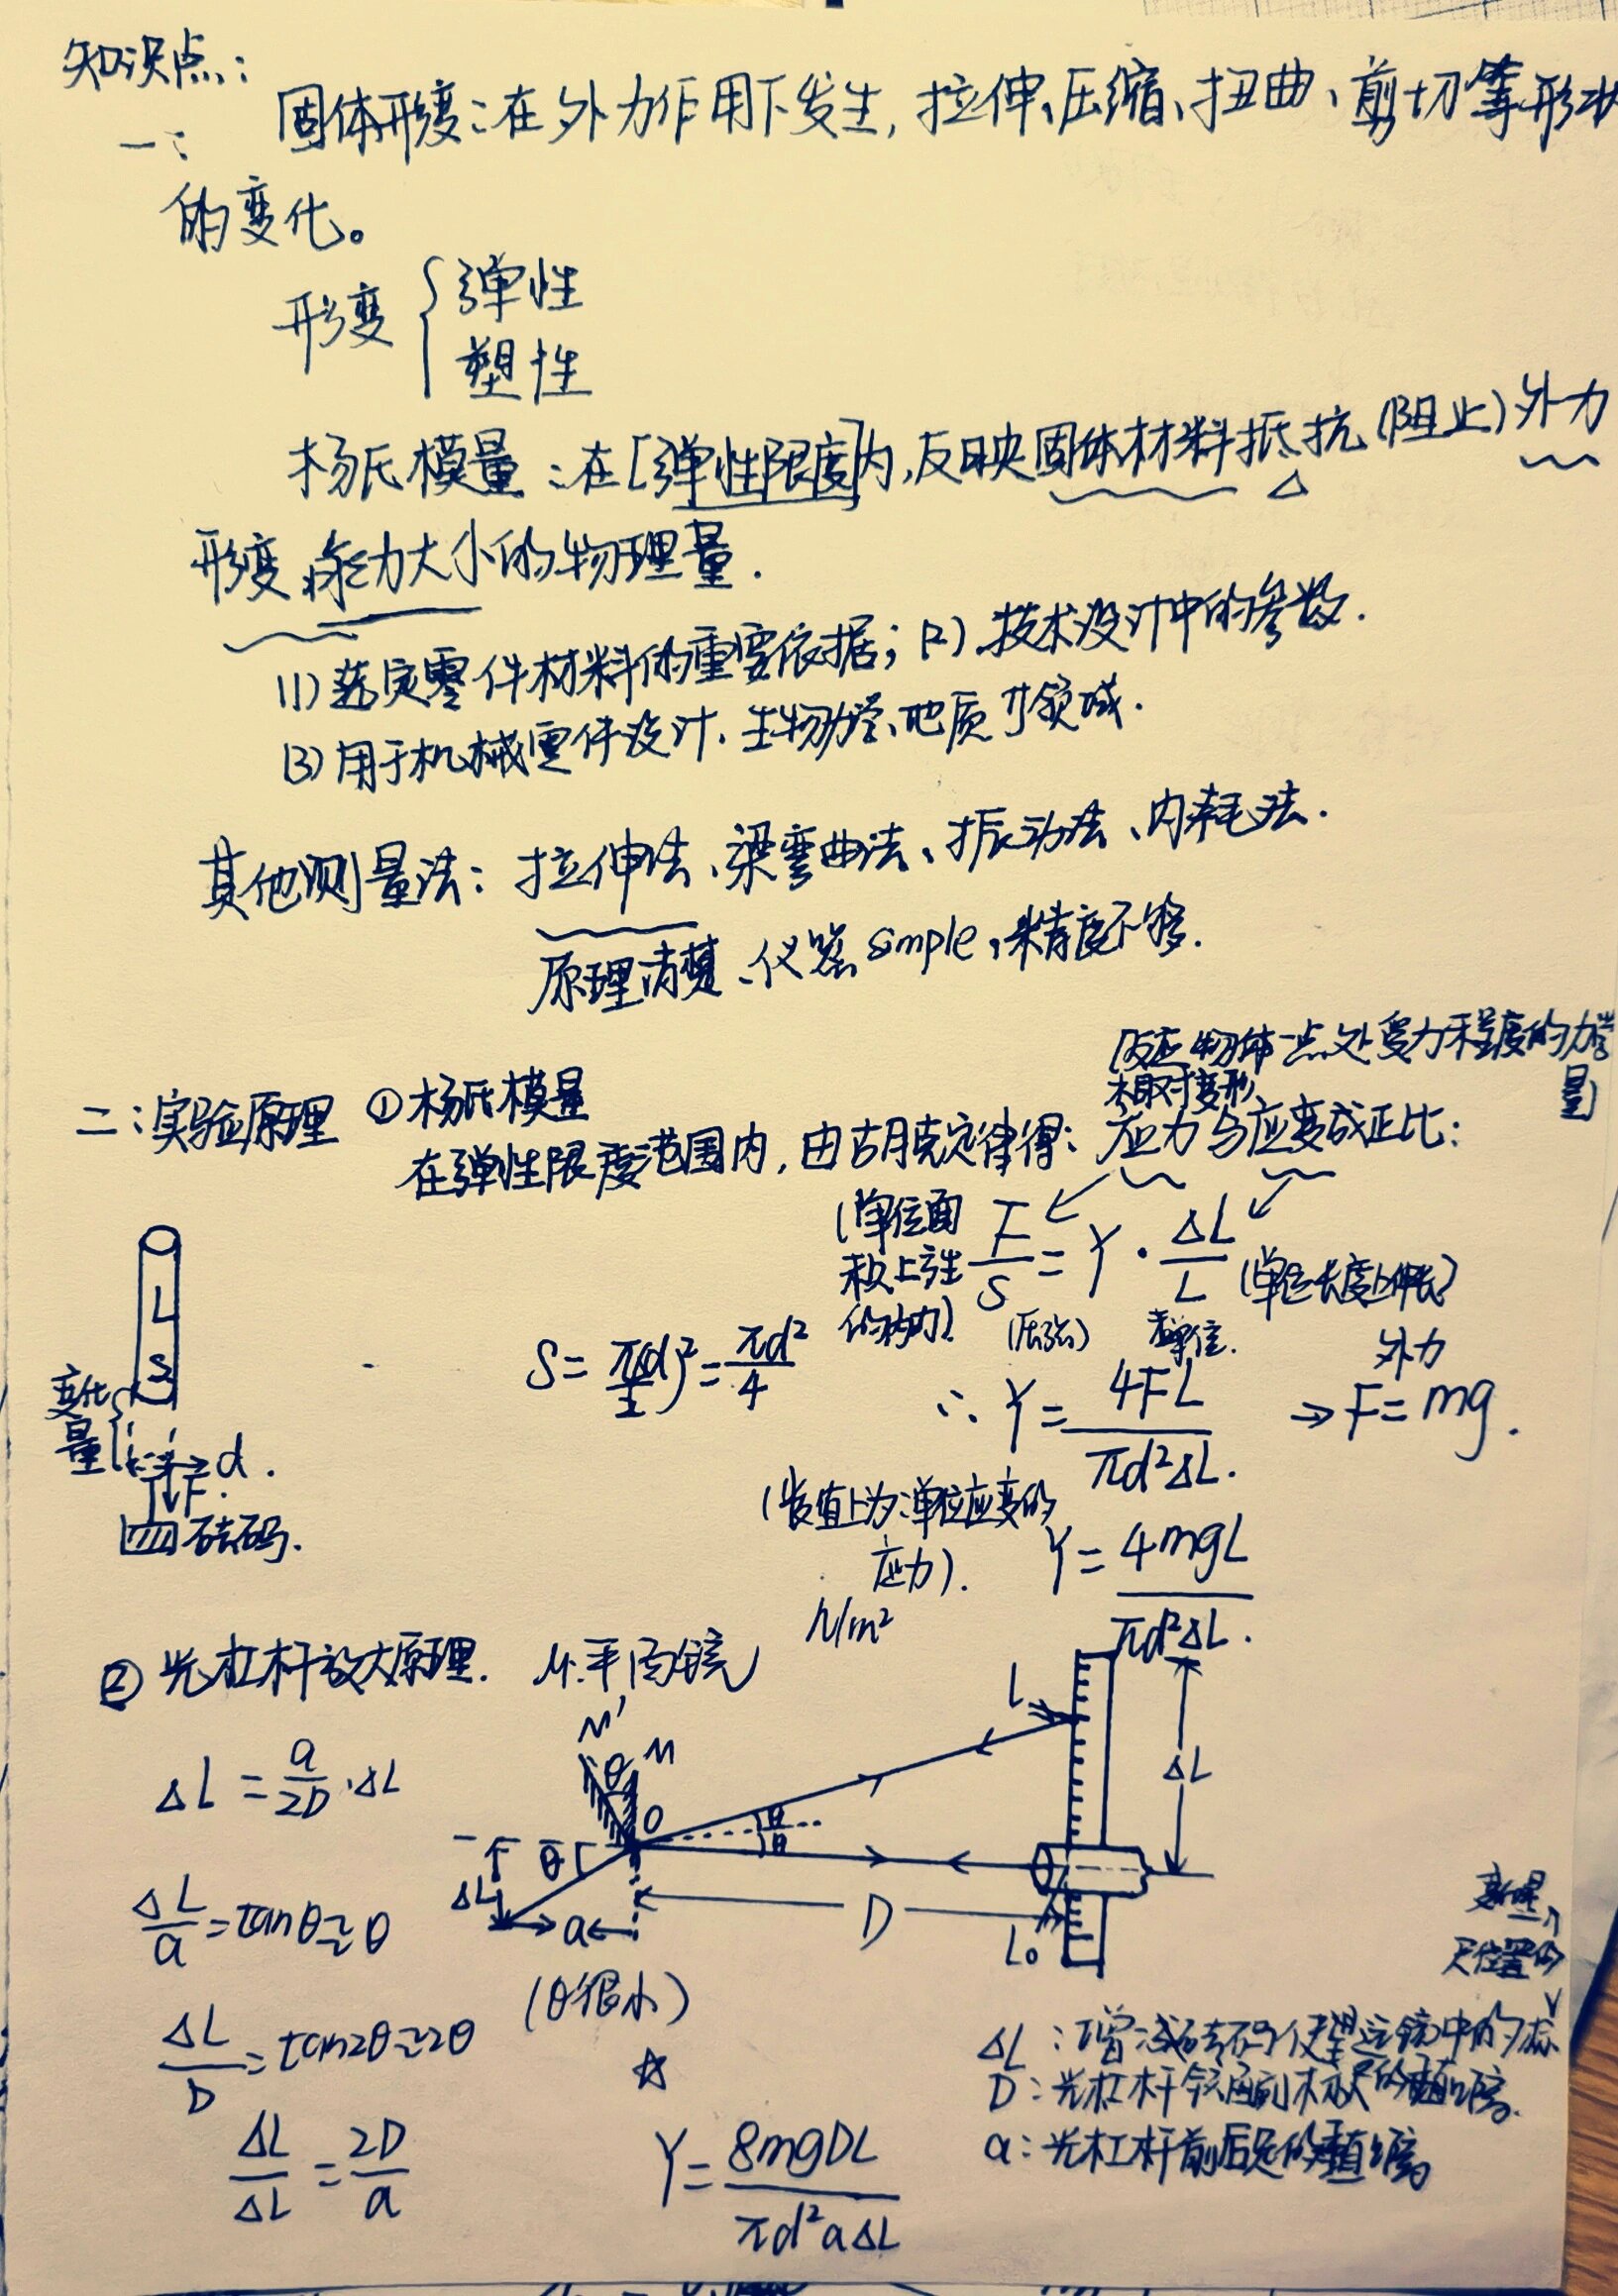 知识点：
一： 固体形变：在外力作用下发生，拉伸、压缩、扭曲、剪切等形状
的变化。
形变 { 弹性
塑性
杨氏模量：在[弹性限度]内，反映固体材料抵抗(阻止)外力
形变能力大小的物理量.
(1) 选定零件材料的重要依据；(2).技术设计中的参数.
(3) 用于机械零件设计、生物力学、地质等领域.
其他测量法：拉伸法、梁弯曲法、振动法、内耗法.
原理清楚、仪器simple，精度不够.
[反应物体一点处受力程度的力学
量]
相对变形
二：实验原理 ①杨氏模量
在弹性限度范围内，由胡克定律得：应力与应变成正比：
(单位面
积上产生
的内力)
F/S = Y · ΔL/L
(单位长度上伸长)
(压强) 无单位.
外力
L
S
变化
量
d.
F.
砝码.
S = π(d/2)² = πd²/4
∴ Y = 4FL/πd²ΔL. ⇒ F = mg.
(数值上为单位应变的
应力).
N/m²
Y = 4mgL/πd²ΔL.
② 光杠杆放大原理. M:平面镜
ΔL = a/2D · ΔL
ΔL/a = tanθ ≈ θ
(θ很小)
ΔL/D = tan2θ ≈ 2θ
ΔL/ΔL = 2D/a
M' M
θ
O
θ
θ
θ
ΔL
a
D
L
L₀
ΔL
☆
Y = 8mgDL/πd²aΔL
变化量
尺位置的
ΔL：增减砝码使望远镜中的标
D：光杠杆镜面到标尺的垂直距离.
a：光杠杆前后足的垂直距离